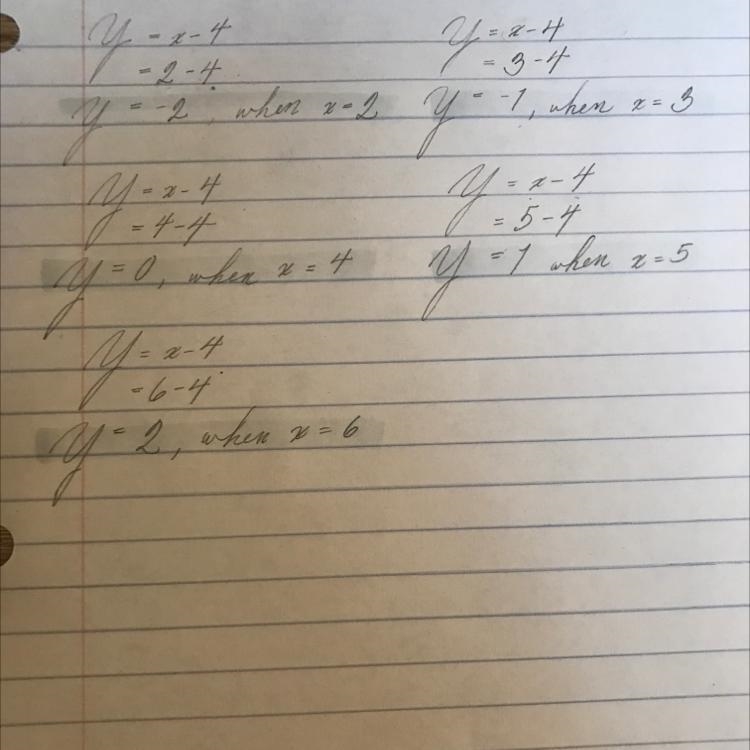 y = x - 4
= 2 - 4
y = -2, when x = 2
y = x - 4
= 3 - 4
y = -1, when x = 3
y = x - 4
= 4 - 4
y = 0, when x = 4
y = x - 4
= 5 - 4
y = 1 when x = 5
y = x - 4
= 6 - 4
y = 2, when x = 6